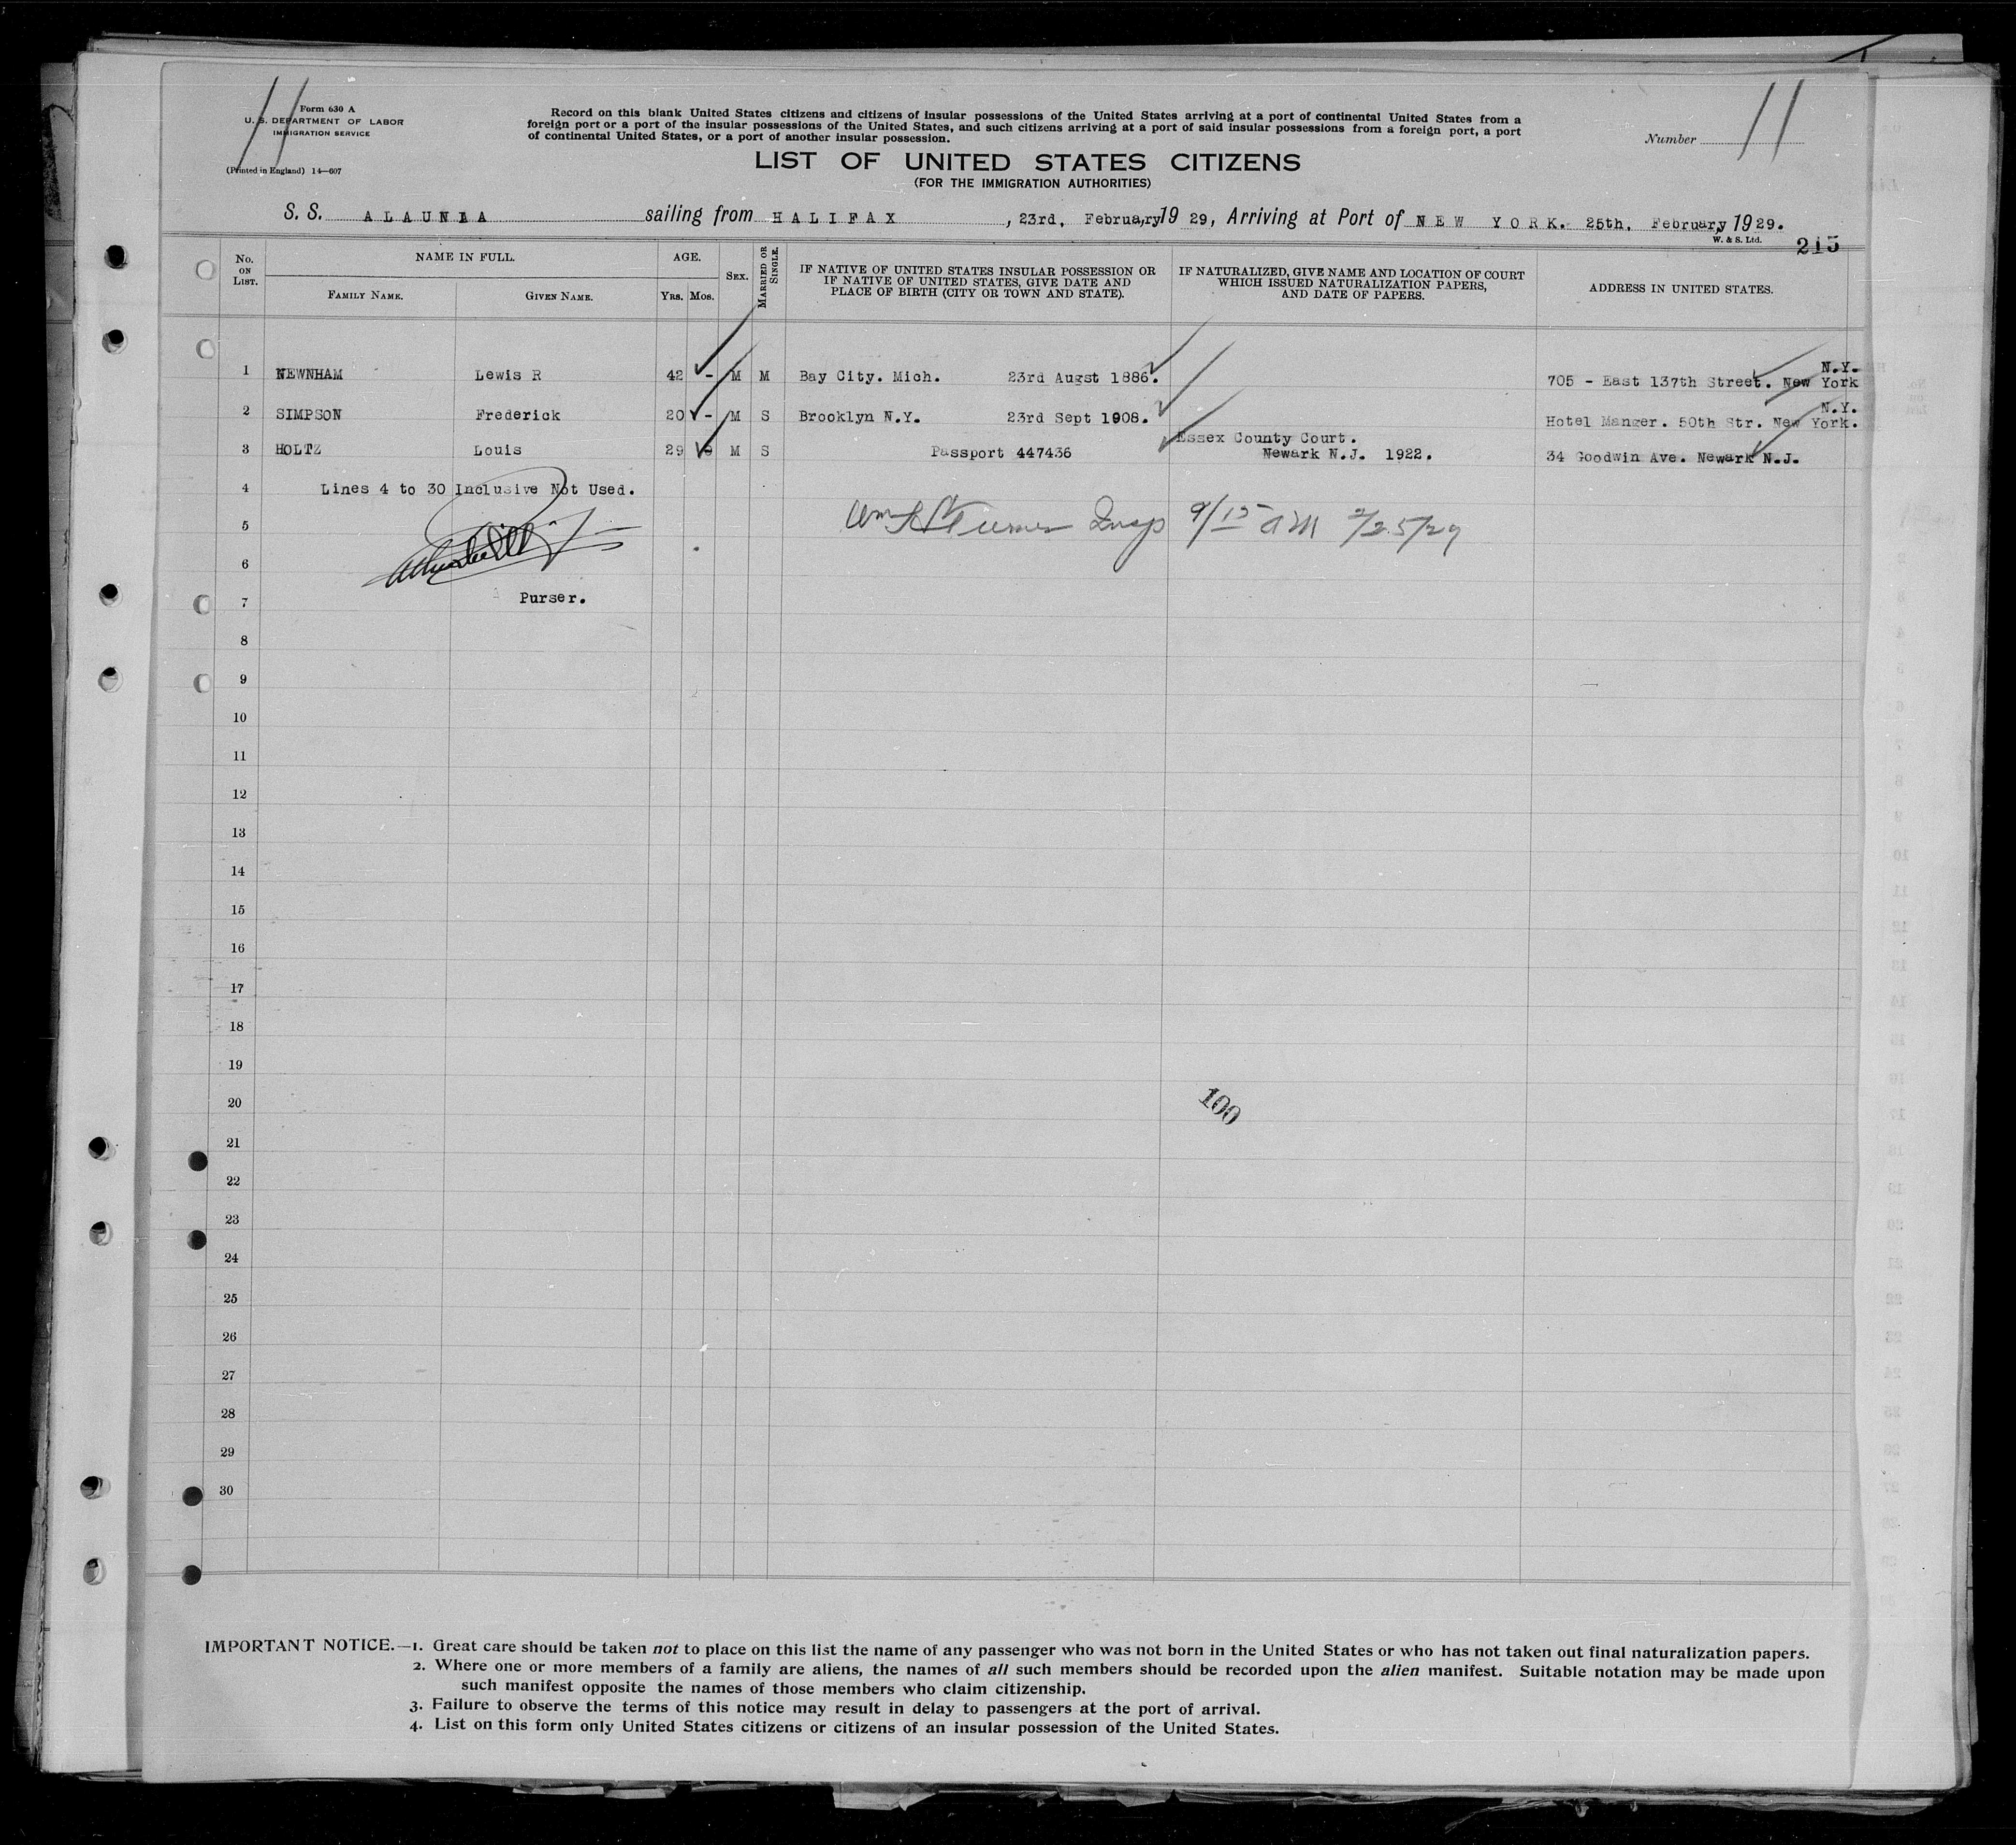 11
Form 630 A
U. S. DEPARTMENT OF LABOR
IMMIGRATION SERVICE
(Printed in England) 14—607
Record on this blank United States citizens and citizens of insular possessions of the United States arriving at a port of continental United States from a
foreign port or a port of the insular possessions of the United States, and such citizens arriving at a port of said insular possessions from a foreign port, a port
of continental United States, or a port of another insular possession.
Number 11
LIST OF UNITED STATES CITIZENS
(FOR THE IMMIGRATION AUTHORITIES)
S. S. ALAUNIA sailing from HALIFAX, 23rd, February, 19 29, Arriving at Port of NEW YORK. 25th, February, 19 29.
W. & S. Ltd.
215
No. ON LIST. NAME IN FULL. FAMILY NAME. GIVEN NAME. AGE. YRS. MOS. SEX. MARRIED OR SINGLE. IF NATIVE OF UNITED STATES INSULAR POSSESSION OR IF NATIVE OF UNITED STATES, GIVE DATE AND PLACE OF BIRTH (CITY OR TOWN AND STATE). IF NATURALIZED, GIVE NAME AND LOCATION OF COURT WHICH ISSUED NATURALIZATION PAPERS, AND DATE OF PAPERS. ADDRESS IN UNITED STATES.
1 NEWNHAM Lewis R 42 - M M Bay City. Mich. 23rd Augst 1886. 705 - East 137th Street. New York N.Y.
2 SIMPSON Frederick 20 - M S Brooklyn N.Y. 23rd Sept 1908. Hotel Manger. 50th Str. New York. N.Y.
3 HOLTZ Louis 29 9 M S Passport 447436 Essex County Court. Newark N.J. 1922. 34 Goodwin Ave. Newark N.J.
4 Lines 4 to 30 Inclusive Not Used.
5 Wm Turner Insp 9/15 AM 2/25/29
6
7 Purser.
8
9
10
11
12
13
14
15
16
17
18
19
20
100
21
22
23
24
25
26
27
28
29
30
IMPORTANT NOTICE.—1. Great care should be taken not to place on this list the name of any passenger who was not born in the United States or who has not taken out final naturalization papers.
2. Where one or more members of a family are aliens, the names of all such members should be recorded upon the alien manifest. Suitable notation may be made upon
such manifest opposite the names of those members who claim citizenship.
3. Failure to observe the terms of this notice may result in delay to passengers at the port of arrival.
4. List on this form only United States citizens or citizens of an insular possession of the United States.